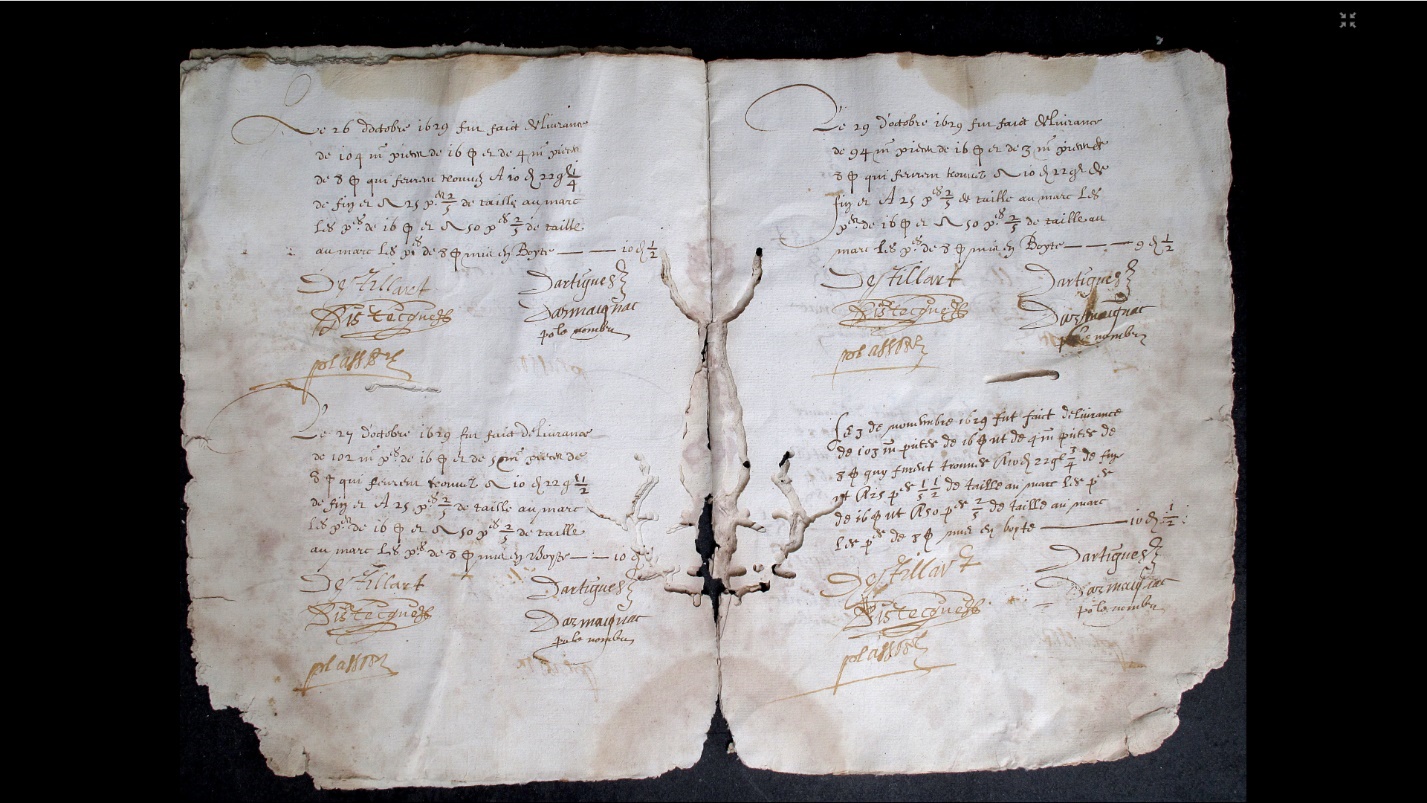 Le 26 doctobre 1629 fut faict deliurance
de 104 m pieces de 16 ₰ et de 4 m pieces
de 8 ₰ qui feurent trouuez A 10 d 22 g 1/4
de fin et A 25 p. es 2/5 de taille au marc
les p. es de 16 ₰ et A 50 p. es 2/5 de taille
au marc les p. es de 8 ₰ mis en Boyte —— 10 d 1/2
Destillart Dartigues
Darmaignac
po le nombre
Le 27 doctobre 1629 fut faict deliurance
de 102 m p. es de 16 ₰ et de m pieces de
8 ₰ qui feurent trouuez A 10 d 22 g 1/2
de fin et A 25 p. es 2/5 de taille au marc
les p. es de 16 ₰ et A 50 p. es 2/5 de taille
au marc les p. es de 8 ₰ mis en Boyte —— 10
Destillart Dartigues
Darmaignac
po le nombre
Le 29 doctobre 1629 fut faict deliurance
de 94 m pieces de 16 ₰ et de 3 m pieces de
8 ₰ qui feurent trouuez A 10 d 22 g de
fin et A 25 p. es 2/5 de taille au marc les
p. es de 16 ₰ et A 50 p. es 2/5 de taille au
marc les p. es de 8 ₰ mis en Boyte —— 9 d 1/2
Destillart Dartigues
Darmaignac
po le nombre
Le 3 de nouembre 1629 fut faict deliurance
de 103 m pieces de 16 ₰ et de 4 m pieces de
8 ₰ quy furent trouues A 10 d 22 g 3/4 de fin
et A 25 p es de taille au marc les p es
de 16 ₰ et A 50 p es 2/5 de taille au marc
les p es de 8 ₰ mis en boyte —— 10 d 1/2
Destillart Dartigues
Darmaignac
po le nombre